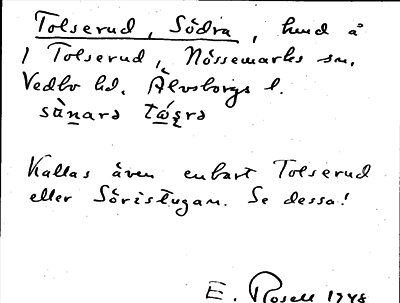 Tolserud, Södra, hmd å
1 Tolserud, Nössemarks sn.
Vedbo hd. Älvsborgs l.
sø̀narə tɷ́ʂrə
Kallas även enbart Tolserud
eller Söristugan. Se dessa!
E. Rosell 1948